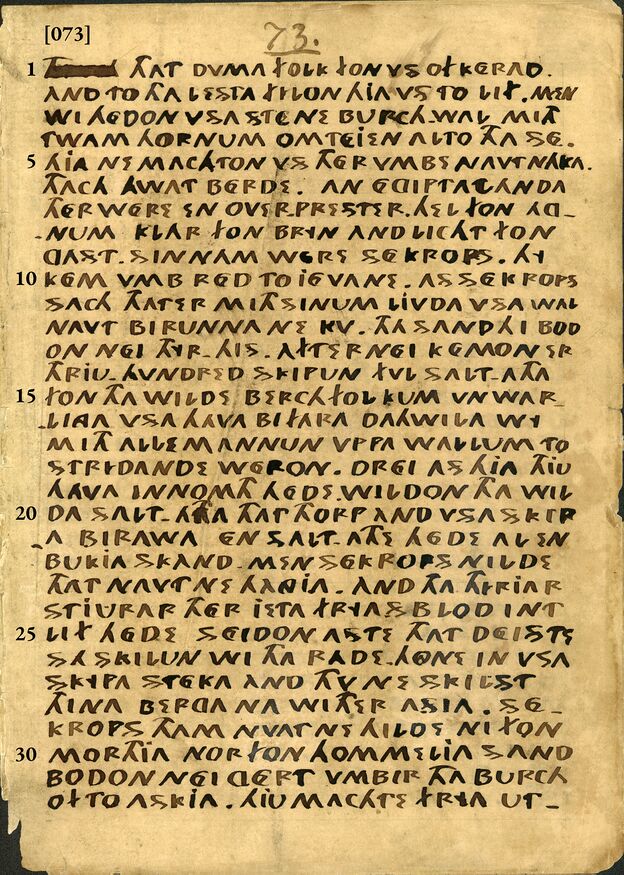 [073]
73.
1 THAT DVMA FOLK FON VS OFKERAD.
AND TO THA LESTA FILON HIA VS TO LIF. MEN
WI HEDON VSA STENE BURCH-WAL MITH
TWAM HORNUM OMTEIEN AL TO THA SE.
5 HIA NE MACHTON VS THER VMBE NAVT NAKA.
THACH HWAT BERDE. AN EGIPTALANDA
THER WERE EN OVER-PRESTER. HEL FON AG-
-NUM KLAR FON BRYN AND LICHT FON
GAST. SIN NAM WERE SEKROPS. HY
10 KEM VMB RED TO IEVANE. AS SEKROPS
SACH THAT ER MITH SINUM LIVDA VSA WAL
NAVT BIRUNNA NE KV. THA SAND HI BOD
ON NEI THYR-HIS. AFTERNEI KEMON ER
THRIU-HVNDRED SKIPUN FUL SALT-ATHA
15 FON THA WILDE BERCHFOLKUM VNWAR-
-LINGA VSA HAVA BIFARA DAHWILA WY
MITH ALLE MANNUN VPPA WALLUM TO
STRIDANDE WERON. DREI AS HIA THIU
HAVA INNOMTH HEDE WILDON THA WIL
20 DA SALT-ATHA THAT THORP AND VSA SKIP
A BIRAWA EN SALT-ATHE HEDE AL EN
BUKIA SKAND. MEN SEKROPS NILDE
THAT NAVT NE HAGIA. AND THA THYRIAR
STIURAR THER IETA FRYAS BLOD INT
25 LIF HEDE SEIDON ASTE THAT DEISTE
SA SKILUN WI THA RADE-HONE IN VSA
SKYPA STEKA AND THV NE SKILST
THINA BERGA NA WITHER ASIA. SE-
KROPS THAM NVAT NE HILDE NI FON
30 MORTH IA NOR FON HOMMELIA SAND
BODON NEI GERT VMBIR THA BURCH
OF TO ASKIA. HIU MACHTE FRYA UT-